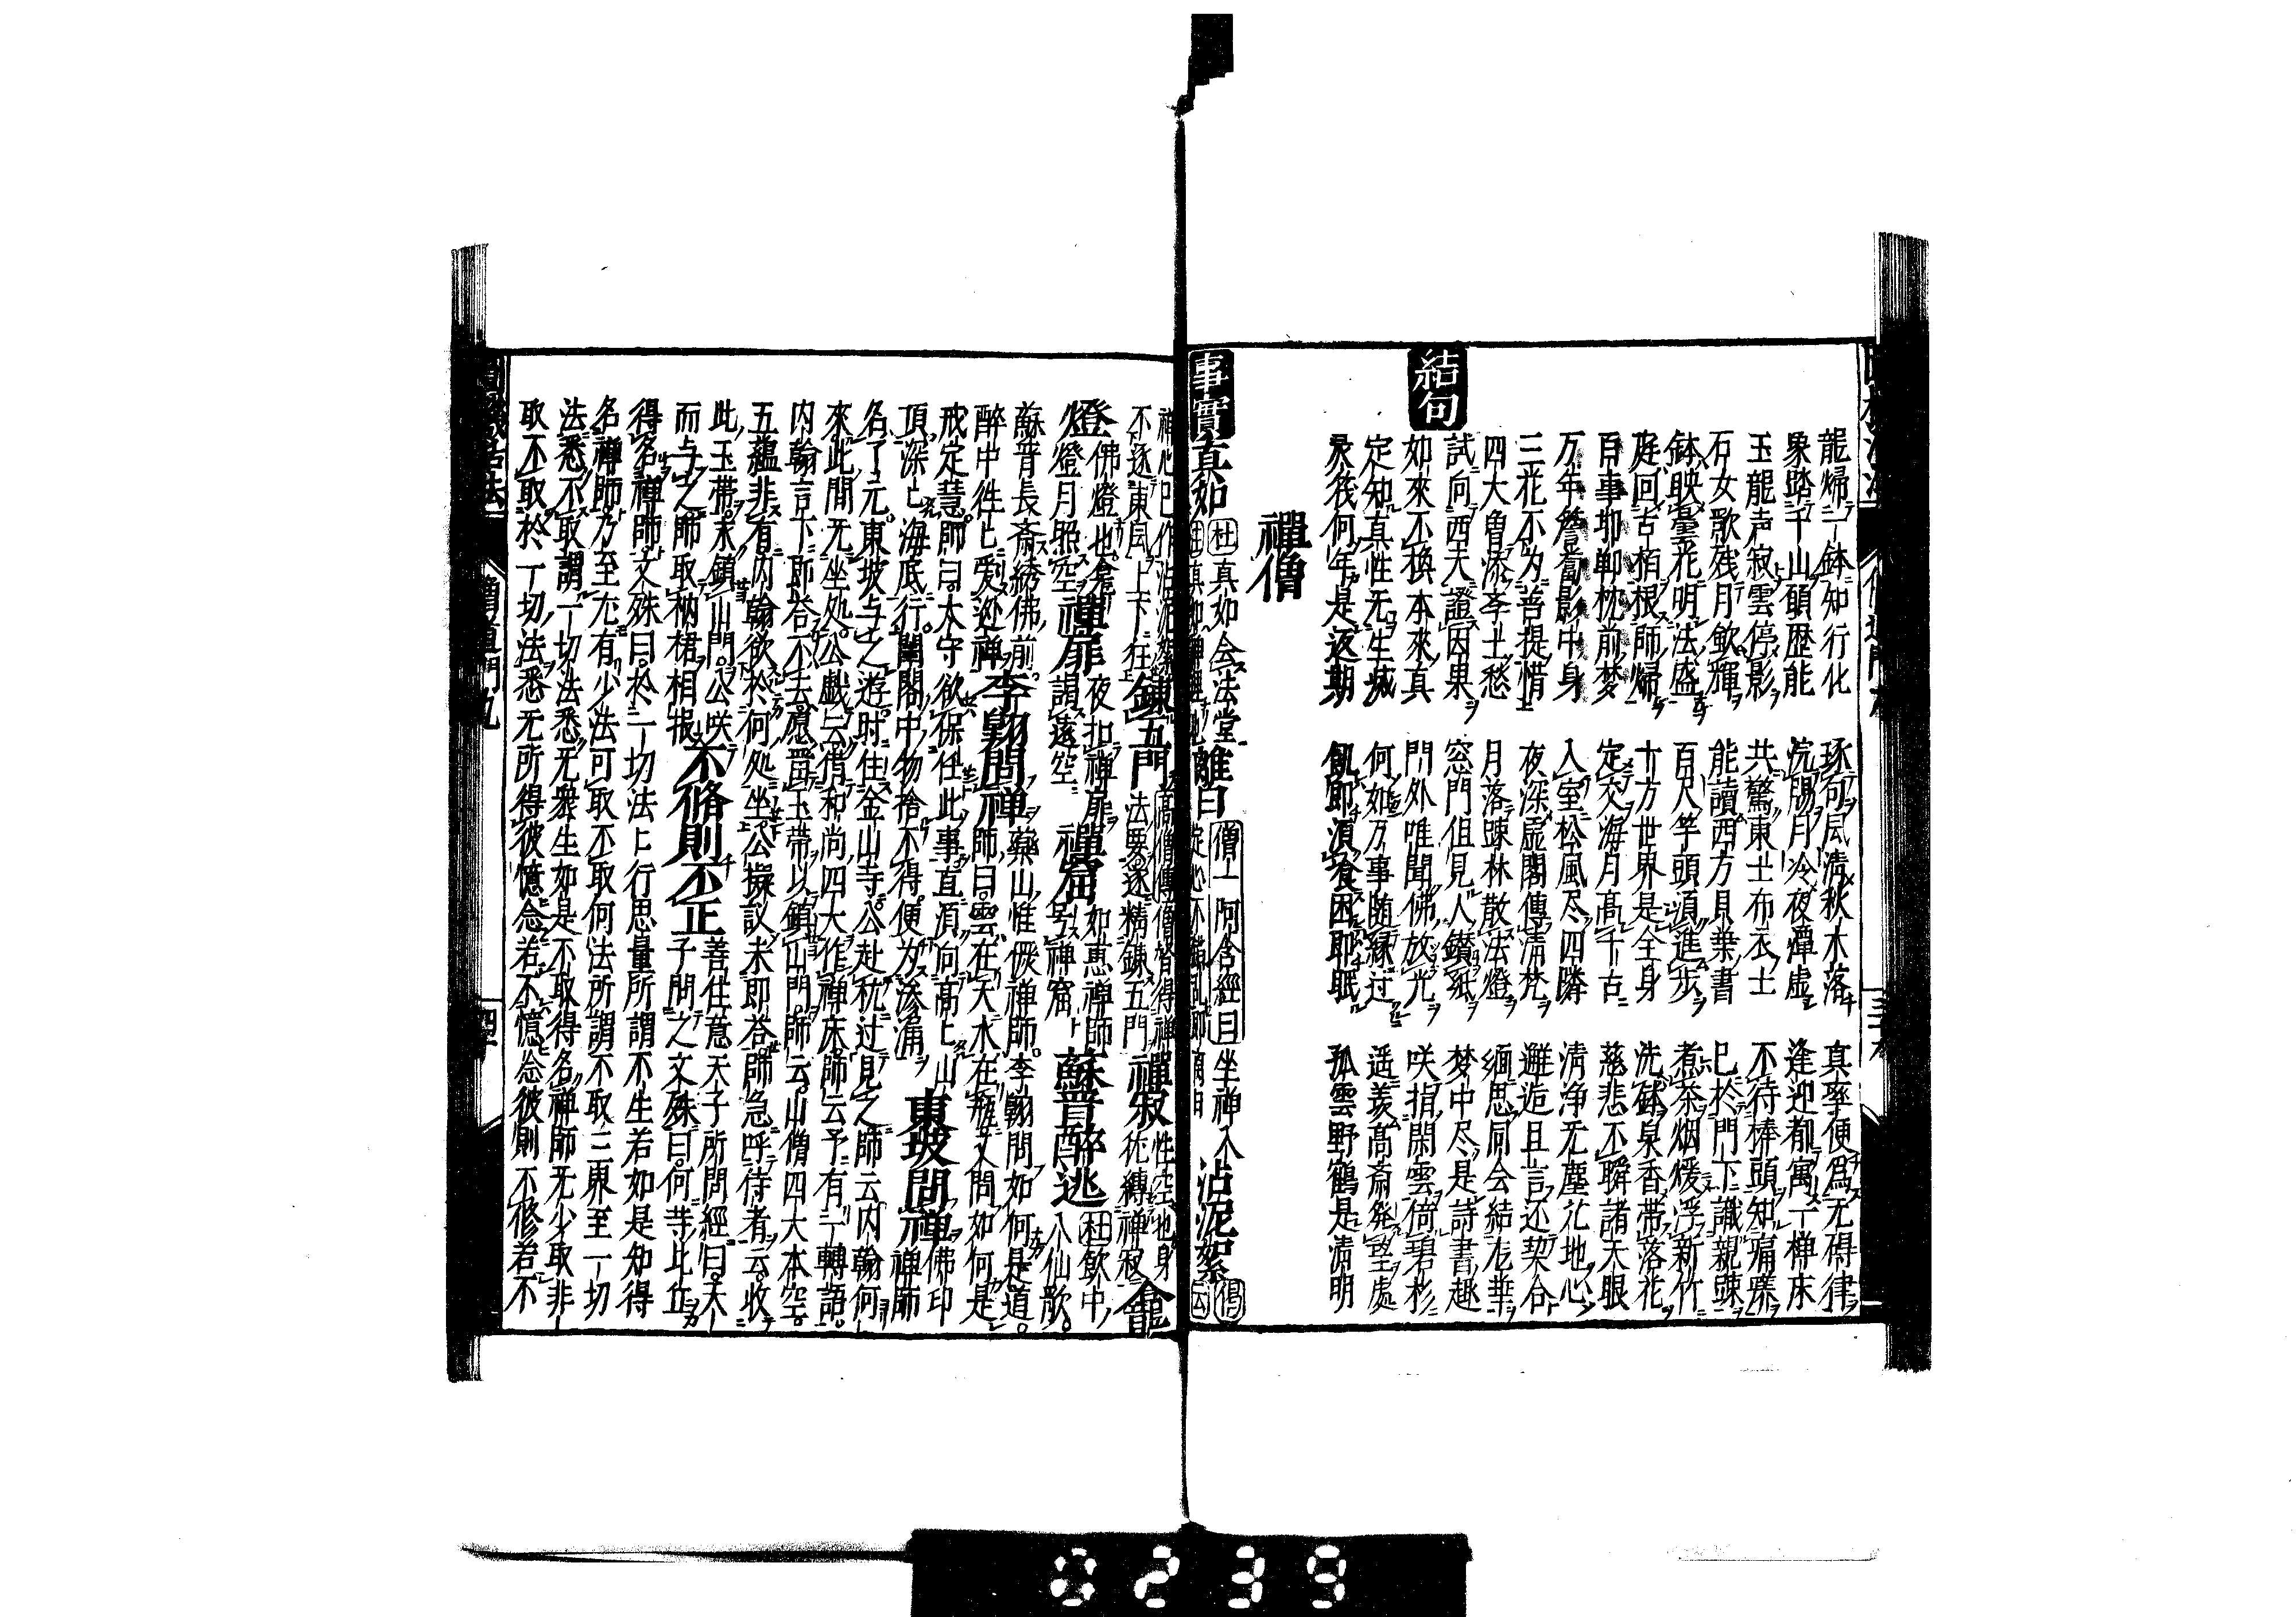 龍歸一鉢知行化　琢句風清秋木落　真率便為无碍律
象踏千山頭歴能　浣腸月冷夜潭虚　逢迎都寓一禅床
玉龍声寂雲停影　共驚東土布衣士　不待棒頭知痛痒
石女歌残月歛輝　能讀西方貝葉書　已於門下識親踈
鉢映曇花明法盛　百尺竿頭須進步　煮茶烟煖浮新竹
庭回古栢根師歸　十方世界是全身　洗鉢泉香帯落花
百事邯鄲枕前梦　定交海月髙千古　慈悲不瞬諸天眼
万年簷蔔影中身　入室松風尽四隣　清浄无塵花地心
三花不为菩提惜　夜深虚閣傳清梵　邂逅且言还契合
四大曽添李士愁　月落踈林散法燈　緬思同会結花華
試向西天證因果　窓門但見人鑚紙　梦中尽是詩書趣
結句
如來不換本來真　門外唯聞佛放光　咲指閑雲倚碧杉
定知真性无生滅　何如万事随縁过　遥羡髙斎発望處
衆筏何年是返期　飢即湏飡困即眠　孤雲野鶴是清明
禪僧
事實
真如　杜真如会法堂　離日　僧一阿含經曰坐禅入　沾泥絮　偈云
禅心已作沾泥絮不逐東风上下狂　錬五門　髙僧傳僧稠得禅法要遂精錬五門　禪寂　性空也身花縛禅寂　龕
燈　佛燈也龕燈月照空　禪扉　夜扣禅扉謁遠空　禪窟　如恵禅師号禅窟　蘇晋醉逃　杜飲中八仙歌
蘇晋長斎綉佛前
醉中徃上爱逃禅　李翱問禅　藥山惟儼禅師李翱問如何是道
師曰雲在天水在瓶又問如何是
戒定慧師曰太守欲保任此事直湏向髙上山
頂深上海底行閨閣中物捨不得便为滲漏　東坡問禅　佛印禅師
名了元東坡与之遊时住金山寺公赴杭过見之師云内翰何
來此間无坐処公戯云借和尚四大作禅床師云予有一轉語
内翰言下即荅不去愿畱玉帯以鎮山門師云山僧四大本空
五蘊非有内翰欲於何処坐公擬议未即荅師急呼侍者云收
此玉帯永鎮山門公咲
而与之師取衲裙相报　不脩則不正　善住意天子所問經曰天
子問之文殊曰何等比丘
得名禅師文殊曰於一切法上行思量所謂不生若如是知得
名禅師乃至无有少法可取不取何法所謂不取三界至一切
法悉不取謂一切法悉无衆生如是不取得名禅師无少取非
取不取於一切法悉无所得彼憶念若不憶念彼則不修若不
0239